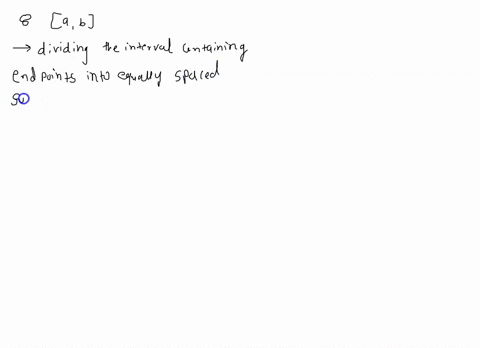 8 [a, b]
→ dividing the interval containing
endpoints into equally spaced
su